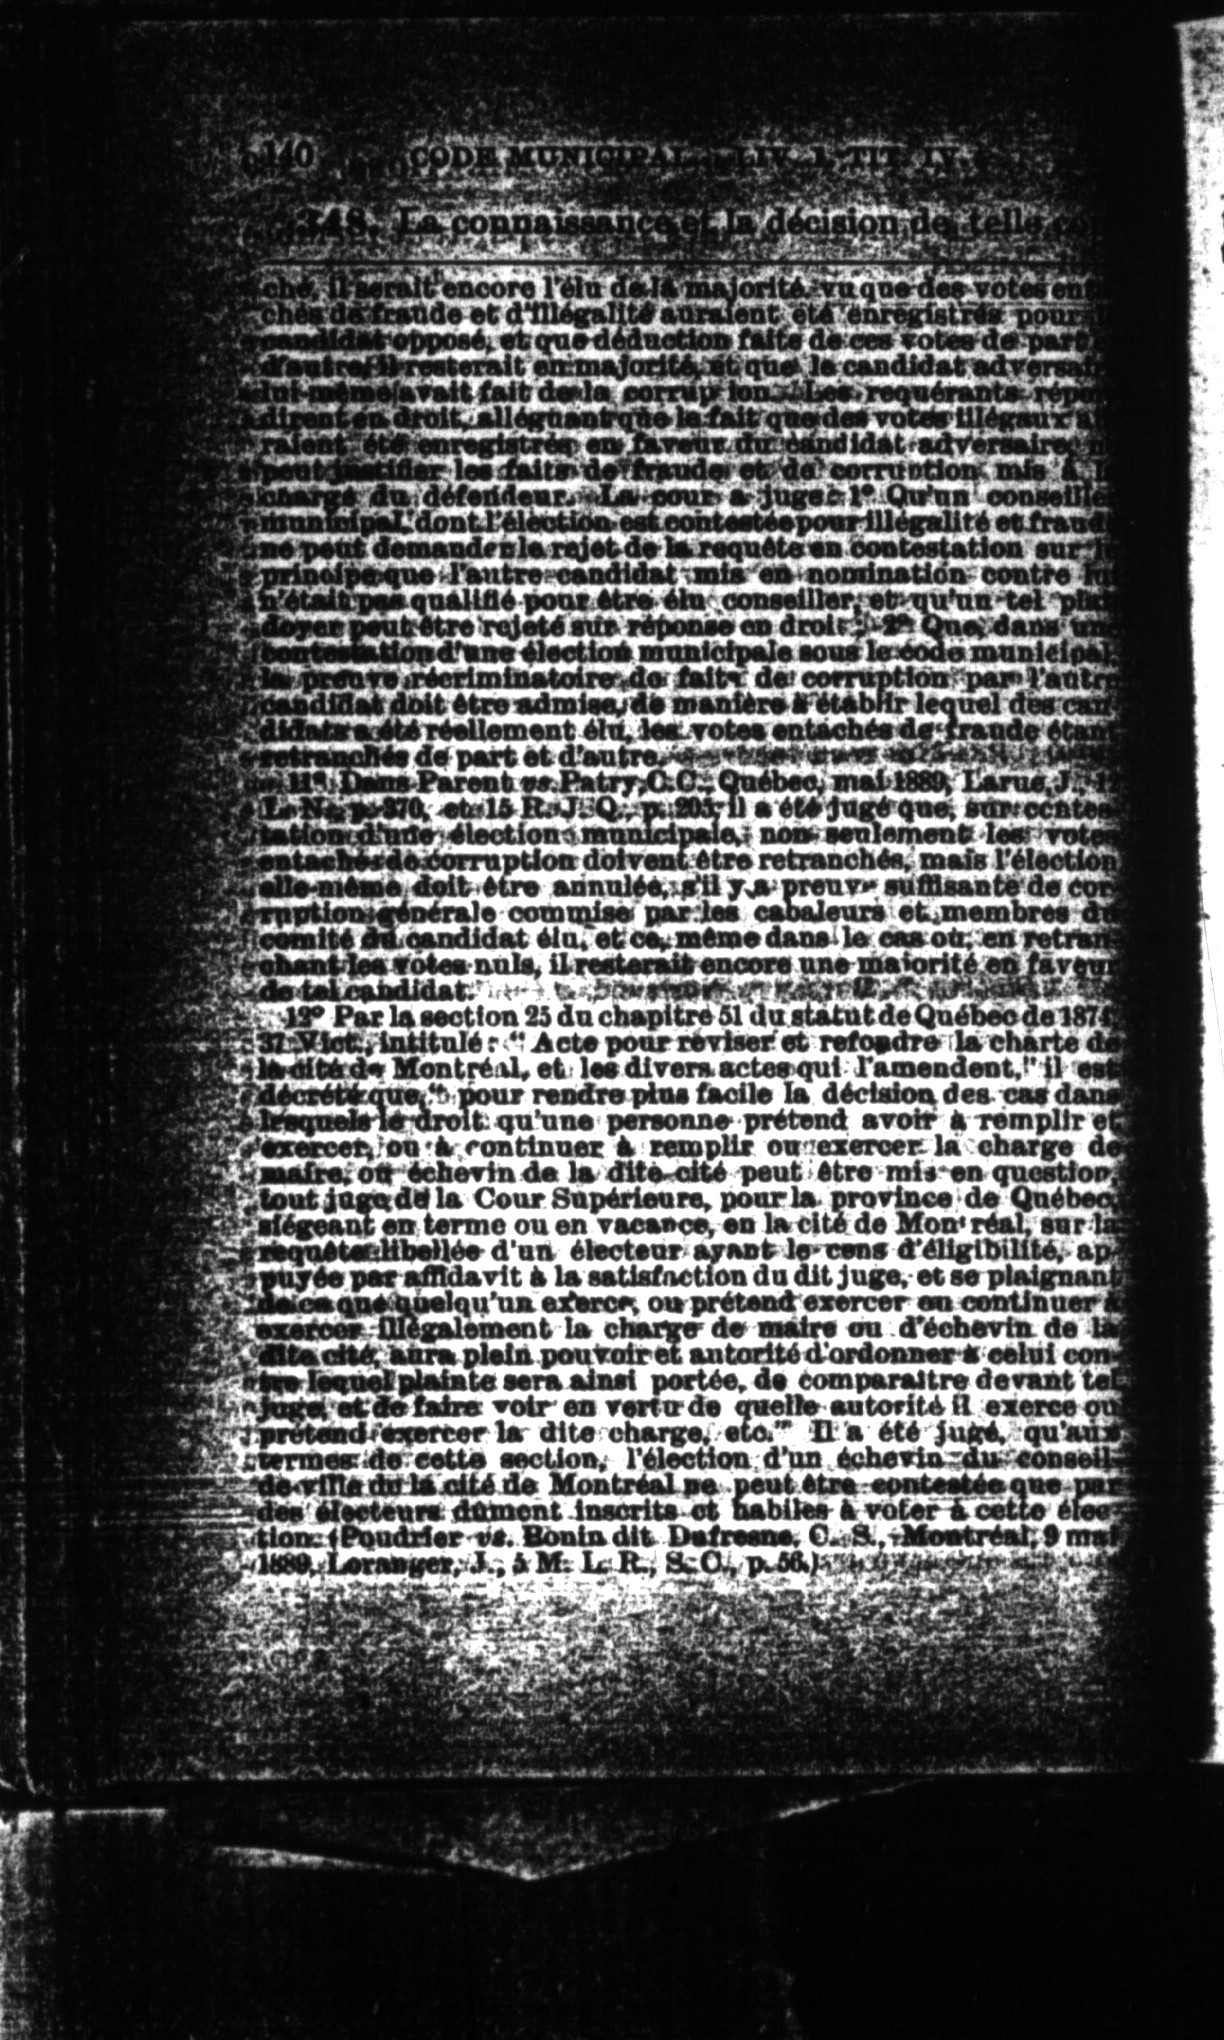 140 CODE MUNICIPAL. LIV. I, TIT. IV
348. La connaissance et la décision de telle con
ché, il serait encore l'élu de la majorité, vu que des votes ent
chés de fraude et d'illégalité auraient été enregistrés pour
candidat opposé, et que déduction faite de ces votes de part
d'autre, il resterait en majorité, et que le candidat adversai
lui-même avait fait de la corrup ion. Les requérants répon
dirent en droit, alléguant que le fait que des votes illégaux a
raient été enregistrés en faveur du candidat adversaire, n
peut justifier les faits de fraude et de corruption mis à l
charge du défendeur. La cour a jugé: 1° Qu'un conseille
municipal, dont l'élection est contestée pour illégalité et fraud
ne peut demander le rejet de la requête en contestation sur l
principe que l'autre candidat mis en nomination contre lui
n'était pas qualifié pour être élu conseiller, et qu'un tel plai
doyer peut être rejeté sur réponse en droit; 2° Que, dans un
contestation d'une élection municipale sous le code municipal,
la preuve récriminatoire de faits de corruption par l'autre
candidat doit être admise, de manière à établir lequel des can
didats a été réellement élu, les votes entachés de fraude étant
retranchés de part et d'autre.
11° Dans Parent vs. Patry, C. C., Québec, mai 1889, Larue, J.
L. N., p. 370, et 15 R. J. Q., p. 205, il a été jugé que, sur contes
tation d'une élection municipale, non seulement les votes
entachés de corruption doivent être retranchés, mais l'élection
elle-même doit être annulée, s'il y a preuve suffisante de cor-
ruption générale commise par les cabaleurs et membres du
comité du candidat élu, et ce, même dans le cas où, en retran-
chant les votes nuls, il resterait encore une majorité en faveur
de tel candidat.
12° Par la section 25 du chapitre 51 du statut de Québec de 1874,
37 Vict., intitulé: "Acte pour réviser et refondre la charte de
la cité de Montréal, et les divers actes qui l'amendent," il est
décrété que, "pour rendre plus facile la décision des cas dans
lesquels le droit qu'une personne prétend avoir à remplir et
exercer, ou à continuer à remplir ou exercer la charge de
maire, ou échevin de la dite cité peut être mis en question
tout juge de la Cour Supérieure, pour la province de Québec,
siégeant en terme ou en vacance, en la cité de Montréal, sur la
requête libellée d'un électeur ayant le cens d'éligibilité, ap-
puyée par affidavit à la satisfaction du dit juge, et se plaignant
de ce que quelqu'un exerce, ou prétend exercer ou continuer à
exercer illégalement la charge de maire ou d'échevin de la
dite cité, aura plein pouvoir et autorité d'ordonner à celui con-
tre lequel plainte sera ainsi portée, de comparaître devant tel
juge, et de faire voir en vertu de quelle autorité il exerce ou
prétend exercer la dite charge, etc." Il a été jugé, qu'aux
termes de cette section, l'élection d'un échevin du conseil-
de-ville de la cité de Montréal ne peut être contestée que par
des électeurs dûment inscrits et habiles à voter à cette élec
tion. (Poudrier vs. Bonin dit Dufresne, C. S., Montréal, 9 mai
1889, Loranger, J., 5 M. L. R., S. C., p. 56.)